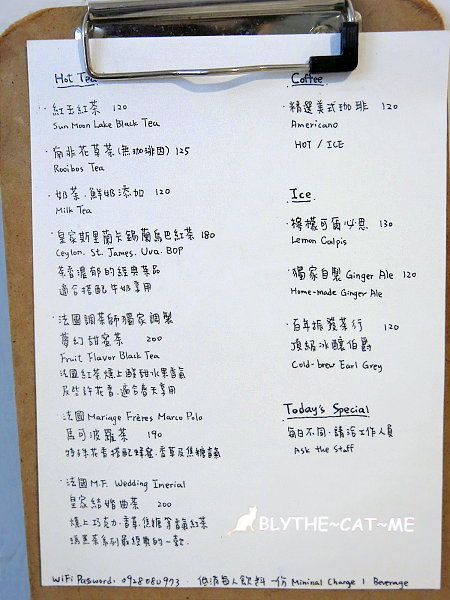 Hot Tea
·紅玉紅茶 120
Sun Moon Lake Black Tea
·南非花草茶(無咖啡因) 125
Rooibos Tea
·奶茶·鮮奶添加 120
Milk Tea
·皇家斯里蘭卡錫蘭烏巴紅茶 180
Ceylon. St. James. Uva. BOP
茶香濃郁的經典茶品
適合搭配牛奶享用
·法國調茶師獨家調製
夢幻甜蜜茶 200
Fruit Flavor Black Tea
法國紅茶燻上酸甜水果香氣
及些許花香,適合春天享用
·法國 Mariage Frères Marco Polo
馬可波羅茶 190
特殊花香搭配蜂蜜·香草及焦糖香氣
·法國 M.F. Wedding Inerial
皇家結婚曲茶 200
燻上巧克力·香草焦糖等香氣紅茶
瑪黑茶系列最經典的一款.
Coffee
·精選美式咖啡 120
Americano
HOT / ICE
Ice
·檸檬可爾必思 130
Lemon Calpis
·獨家自製 Ginger Ale 120
Home-made Ginger Ale
·百年振發茶行 120
頂級冰釀伯爵
Cold-brew Earl Grey
Today's Special
每日不同·請洽工作人員
Ask the Staff
BLYTHE~CAT~ME
WiFi Password: 0928080973 · 低消每人飲料一份 Mininal Charge 1 Beverage